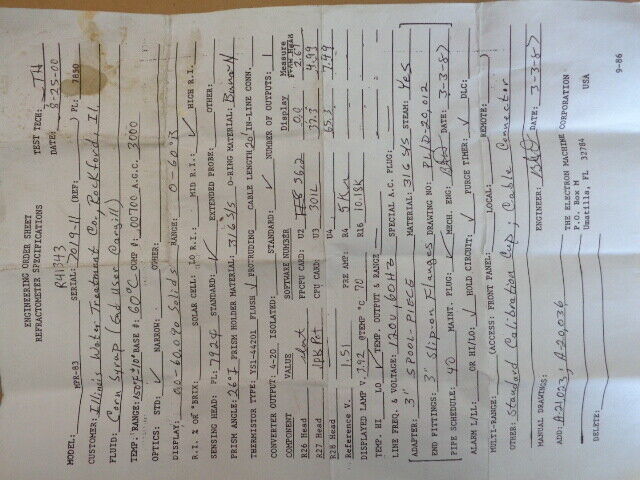 ENGINEERING ORDER SHEET
REFRACTOMETER SPECIFICATIONS
TEST TECH: TH
R41343 DATE: 8-25-00
MODEL: MPR-83 SERIAL: 7019-11 (REF: ) PL: 7850
CUSTOMER: Illinois Water Treatment Co. Rockford, Il.
FLUID: Corn Syrup (End User Cargill)
TEMP: RANGE: 150F±10° BASE #: 60°C COMP #: .00700 A.G.C. 3000
OPTICS: STD: ✓ NARROW: OTHER:
DISPLAY: 00-60.0% Solids RANGE: 0-60°B
R.I. % OR °BRIX: SOLAR CELL: LO R.I. MID R.I. ✓ HIGH R.I.
SENSING HEAD: PL: 7924 STANDARD: ✓ EXTENDED PROBE: OTHER:
PRISM ANGLE: 26° PRISM HOLDER MATERIAL: 316 S/S O-RING MATERIAL: Buna-N
THERMISTOR TYPE: YSI-44201 FLUSH ✓ PROTRUDING CABLE LENGTH 20' IN-LINE CONN.
CONVERTER OUTPUT: 4-20 ISOLATED: STANDARD: ✓ NUMBER OF OUTPUTS: 1
COMPONENT VALUE SOFTWARE NUMBER Display Measure
R26 Head short FPCPU CARD: U2 56.2 0.0 2.67
R27 Head 10K Pot CPU CARD: U3 301L 37.3 4.99
R28 Head U4 65.3 7.99
Reference V. 1.51 PRE AMP: R4 5K
DISPLAYED LAMP V. 392 @TEMP °C 70 R16 10.18K
TEMP. HI LO ✓ TEMP. OUTPUT & RANGE
LINE FREQ. & VOLTAGE: 120V, 60HZ SPECIAL A.C. PLUG:
ADAPTER: 3" SPOOL-PIECE MATERIAL: 316 S/S STEAM: Yes
END FITTINGS: 3" Slip-on Flanges DRAWING NO: PL/D-20,012
PIPE SCHEDULE: 40 MAINT. PLUG: ✓ MECH. ENG: DATE: 3-3-87
ALARM L/LL: OR HI/LO: ✓ HOLD CIRCUIT: ✓ PURGE TIMER: ✓ DLC:
MULTI-RANGE: (ACCESS: FRONT PANEL: LOCAL: REMOTE: )
OTHER: Standard Calibration Cup, Cable Connector
MANUAL DRAWINGS: ENGINEER: DATE: 3-3-87
ADD: A21023, A20036
THE ELECTRON MACHINE CORPORATION
P.O. Box M
Umatilla, FL 32784 USA
DELETE:
9-86